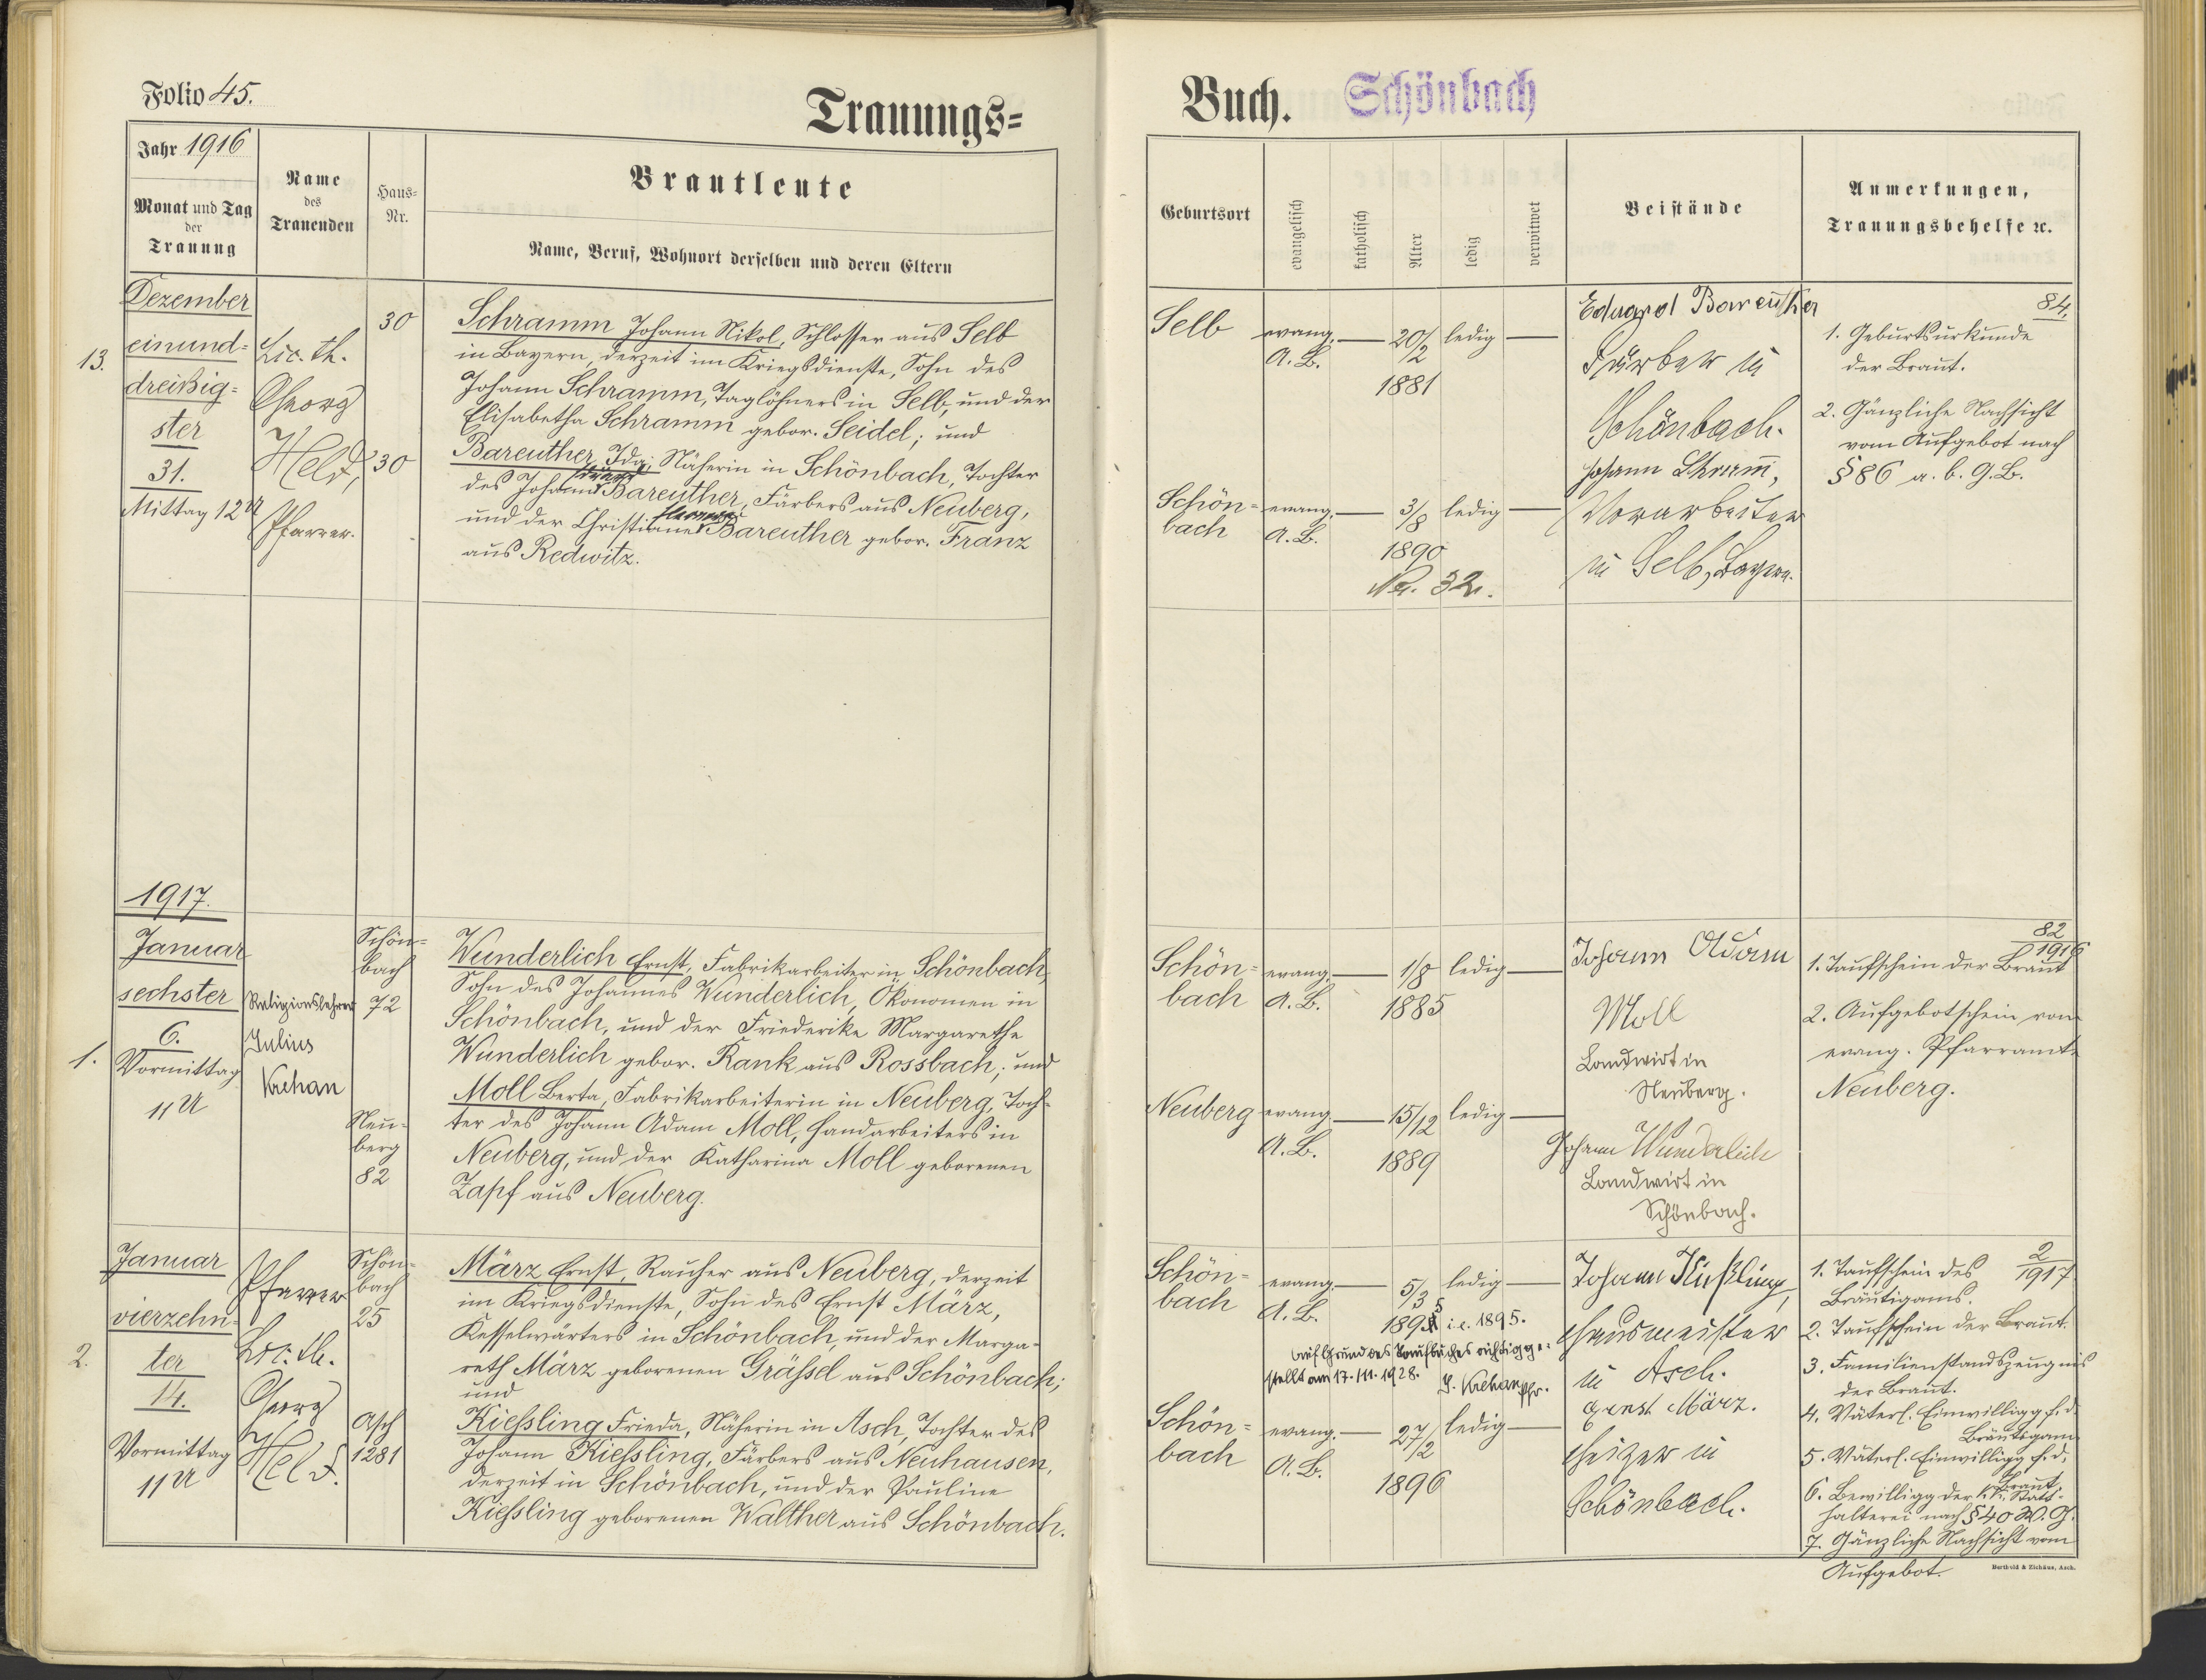 Folio 45.
Trauungs=
Jahr 1916
Monat und Tag
der
Trauung
Name
des
Trauenden
Haus=
Nr.
Brautleute
Name, Beruf, Wohnort derselben und deren Eltern
13.
Dezember
einund=
dreißig=
ster
31.
Mittag 12 U
Lic. th.
Georg
Held,
Pfarrer.
30
30
Schramm Johann Nikol, Schlosser aus Selb
in Bayern, derzeit im Kriegsdienste, Sohn des
Johann Schramm, Taglöhners in Selb, und der
Elisabetha Schramm gebor. Seidel; und
Bareuther Ida, Näherin in Schönbach, Tochter
des Johann Bareuther, Färbers aus Neuberg,
und der Christiane Bareuther gebor. Franz
aus Redwitz.
1917.
1.
Januar
sechster
6.
Vormittag
11 U
Religionslehrer
Julius
Krehan
Schön=
bach
72
Neu=
berg
82
Wunderlich Ernst, Fabrikarbeiter in Schönbach,
Sohn des Johannes Wunderlich, Ökonomen in
Schönbach, und der Friederike Margarethe
Wunderlich gebor. Rank aus Rossbach; und
Moll Berta, Fabrikarbeiterin in Neuberg, Toch=
ter des Johann Adam Moll, Handarbeiters in
Neuberg, und der Katharina Moll geborenen
Zapf aus Neuberg.
2.
Januar
vierzehn=
ter
14.
Vormittag
11 U
Pfarrer
Lic. th.
Georg
Held.
Schön=
bach
25
Asch
1281
März Ernst, Rauher aus Neuberg, derzeit
im Kriegsdienste, Sohn des Ernst März,
Kesselwärters in Schönbach, und der Marga=
reth März geborenen Gräßel aus Schönbach;
und
Kießling Frieda, Näherin in Asch, Tochter des
Johann Kießling, Färbers aus Neuhausen,
derzeit in Schönbach, und der Pauline
Kießling geborenen Walther aus Schönbach.
Buch.
Schönbach
Geburtsort
evangelisch
katholisch
Alter
ledig
verwitwet
Beistände
Anmerkungen,
Trauungsbehelfe ꝛc.
Selb
evang.
A. B.
20/2
1881
ledig
Schön=
bach
evang.
A. B.
3/8
1890
ledig
Nr. 32.
Eduard Bareuther
Färber in
Schönbach.
Johann Schramm,
Vorarbeiter
in Selb, Bayern.
84.
1. Geburtsurkunde
der Braut.
2. Gänzliche Nachsicht
vom Aufgebot nach
§ 86 a. b. G. B.
Schön=
bach
evang.
A. B.
1/8
1885
ledig
Neuberg
evang.
A. B.
15/12
1889
ledig
Johann Adam
Moll
Landwirt in
Neuberg.
Johann Wunderlich
Landwirt in
Schönbach.
82
1916
1. Taufschein der Braut
2. Aufgebotschein vom
evang. Pfarramte
Neuberg.
Schön=
bach
evang.
A. B.
5/3
1895 i. e. 1895.
ledig
auf Grund des Taufbuches richtigge=
stellt am 17. III. 1928. J. Krehan Pfr.
Schön=
bach
evang.
A. B.
27/2
1896
ledig
Johann Kießling,
Hausmeister
in Asch.
Ernst März.
Heizer in
Schönbach.
2
1917
1. Taufschein des
Bräutigams.
2. Taufschein der Braut.
3. Familienstandszeugnis
der Braut.
4. Väterl. Einwilligg f. d.
Bräutigam
5. Väterl. Einwilligg f. d.
Braut.
6. Bewilligg der k. k. Statt=
halterei nach § 40 W. G.
7. Gänzliche Nachsicht vom
Aufgebot.
Berthold & Eichäus, Asch.